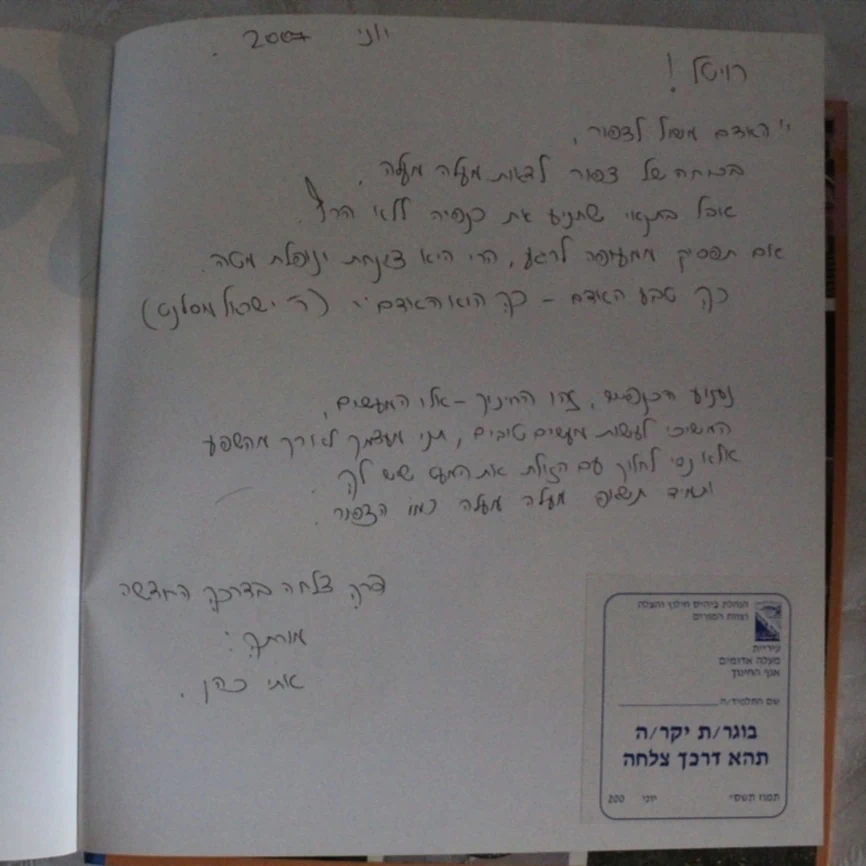 יוני 2007.
רויטל!
"האדם משול לצפור,
בכוחה של צפור לדאות מעלה מעלה,
אבל בתנאי שתניע את כנפיה ללא הרף.
אם תפסיק ממעופה לרגע, הרי היא צונחת ונופלת מטה.
כך טבע האדם - כך הוא האדם" (ר' ישראל מסלנט)
נענוע הכנפיים, זהו החינוך - אלו המעשים,
המשיכי לעשות מעשים טובים, תני מעצמך לאורך
אלא נסי לחלוק עם הזולת את המעט שיש לך.
ותמיד תשאפי מעלה מעלה כמו הצפור.
דרך צלחה בדרכך החדשה
מורתך:
אתי כהן.
הנהלת ביה"ס חינוך והצלה
וצוות המורים
עיריית
מעלה אדומים
אגף החינוך
שם התלמיד/ה
בוגר/ת יקר/ה
תהא דרכך צלחה
תמוז תשס"
יוני 200